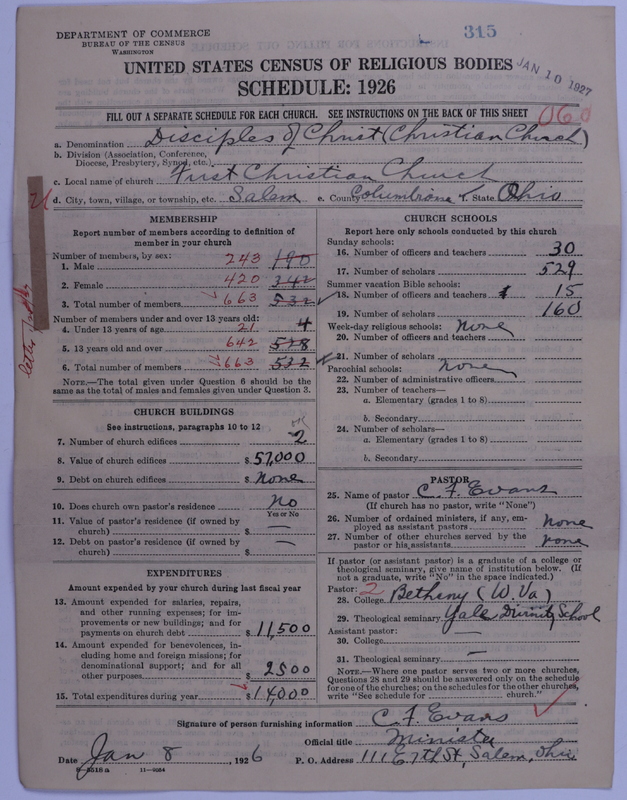 DEPARTMENT OF COMMERCE
BUREAU OF THE CENSUS
WASHINGTON
315
JAN 10 1927
UNITED STATES CENSUS OF RELIGIOUS BODIES
SCHEDULE: 1926
FILL OUT A SEPARATE SCHEDULE FOR EACH CHURCH. SEE INSTRUCTIONS ON THE BACK OF THIS SHEET
060
a. Denomination Disciples of Christ (Christian Church)
b. Division (Association, Conference, Diocese, Presbytery, Synod, etc.)
c. Local name of church First Christian Church
d. City, town, village, or township, etc. Salem e. County Columbiana f. State Ohio
MEMBERSHIP
Report number of members according to definition of
member in your church
Number of members, by sex:
1. Male 243 190
2. Female 420 342
3. Total number of members 663 532
Number of members under and over 13 years old:
4. Under 13 years of age 21 4
5. 13 years old and over 642 528
6. Total number of members 663 532
NOTE.—The total given under Question 6 should be the
same as the total of males and females given under Question 3.
CHURCH BUILDINGS
See instructions, paragraphs 10 to 12
7. Number of church edifices 2
8. Value of church edifices $ 57,000
9. Debt on church edifices $ None
10. Does church own pastor's residence No
Yes or No
11. Value of pastor's residence (if owned by
church) $ —
12. Debt on pastor's residence (if owned by
church) $ —
EXPENDITURES
Amount expended by your church during last fiscal year
13. Amount expended for salaries, repairs,
and other running expenses; for im-
provements or new buildings; and for
payments on church debt $ 11,500
14. Amount expended for benevolences, in-
cluding home and foreign missions; for
denominational support; and for all
other purposes $ 2500
15. Total expenditures during year $ 14,000
CHURCH SCHOOLS
Report here only schools conducted by this church
Sunday schools:
16. Number of officers and teachers 30
17. Number of scholars 529
Summer vacation Bible schools:
18. Number of officers and teachers 15
19. Number of scholars 160
Week-day religious schools: None
20. Number of officers and teachers
21. Number of scholars
Parochial schools: None
22. Number of administrative officers
23. Number of teachers—
a. Elementary (grades 1 to 8)
b. Secondary
24. Number of scholars—
a. Elementary (grades 1 to 8)
b. Secondary
PASTOR
25. Name of pastor C. F. Evans
(If church has no pastor, write "None")
26. Number of ordained ministers, if any, em-
ployed as assistant pastors None
27. Number of other churches served by the
pastor or his assistants None
If pastor (or assistant pastor) is a graduate of a college or
theological seminary, give name of institution below. (If
not a graduate, write "No" in the space indicated.)
Pastor: 2
28. College Bethany (W. Va)
29. Theological seminary Yale Divinity School
Assistant pastor:
30. College —
31. Theological seminary —
NOTE.—Where one pastor serves two or more churches,
Questions 28 and 29 should be answered only on the schedule
for one of the churches; on the schedules for the other churches,
write "See schedule for church."
Signature of person furnishing information C. F. Evans
Official title Minister
Date Jan 8, 1926 P. O. Address 111 E 7th St, Salem, Ohio
8-5518 a 11-9084